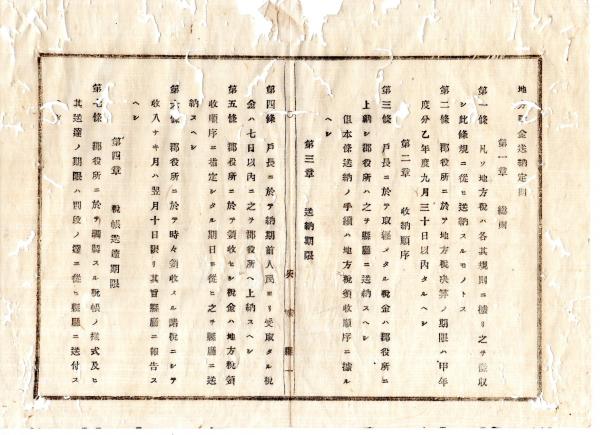 地方税金送納定則
第一章　総則
第一條　凡ソ地方税ハ各其規則ニ據リ之ヲ徴収
シ此條規ニ從ヒ送納スルモノトス
第二條　郡役所ニ於テ地方税決算ノ期限ハ甲年
度分乙年度九月三十日以內タルヘシ
第二章　收納順序
第三條　戸長ニ於テ取纏メタル税金ハ郡役所ニ
上納シ郡役所ハ之ヲ縣廳ニ送納スヘシ
但本條送納ノ手續ハ地方税領收順序ニ據ル
ヘシ
第三章　送納期限
第四條　戸長ニ於テ納期前人民ヨリ受取タル税
金ハ七日以內ニ之ヲ郡役所ヘ上納スヘシ
第五條　郡役所ニ於テ領收セシ税金ハ地方税領
收順序ニ指定シタル期日ニ從ヒ之ヲ縣廳ニ送
納スヘシ
第六條　郡役所ニ於テ時々領收スル諸税ニシテ
收入ナキ月ハ翌月十日限リ其旨縣廳ニ報告ス
ヘシ
第四章　税帳送達期限
第七條　郡役所ニ於テ調製スル税帳ノ様式及ヒ
其送達ノ期限ハ別段ノ達ニ從ヒ縣廳ニ送付ス